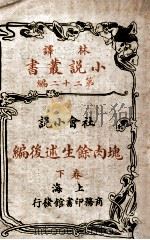 林譯
小說叢書
第二十二編
社會小說
塊肉餘生述後編
卷下
上海
商務印書館發行